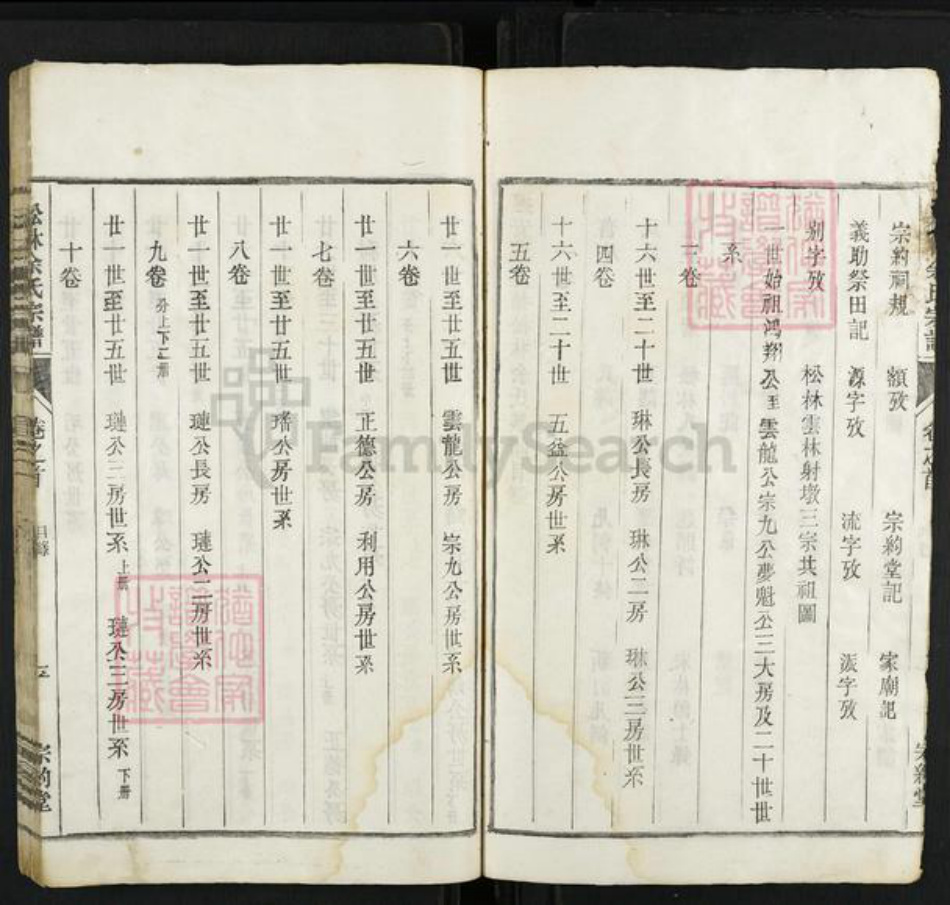 宗約祠規 額攷 宗約堂記 家廟記
義助祭田記 源字攷 流字攷 派字攷
別字攷 松林雲林射墩三宗共祖圖
一世始祖鴻翔公至雲龍公宗九公夢魁公三大房及二十世世
系
三卷
十六世至二十世 琳公長房 琳公二房 琳公三房世系
四卷
十六世至二十世 五益公房世系
五卷
廿一世至廿五世 雲龍公房 宗九公房世系
六卷
廿一世至廿五世 正德公房 利用公房世系
七卷
廿一世至廿五世 璠公房世系
八卷
廿一世至廿五世 璉公長房 璉公二房世系
九卷 分上下二册
廿一世至廿五世 璉公三房世系 上册 璉公三房世系 下册
十卷
松林余氏宗譜 卷之首 目錄 宗約堂
FamilySearch